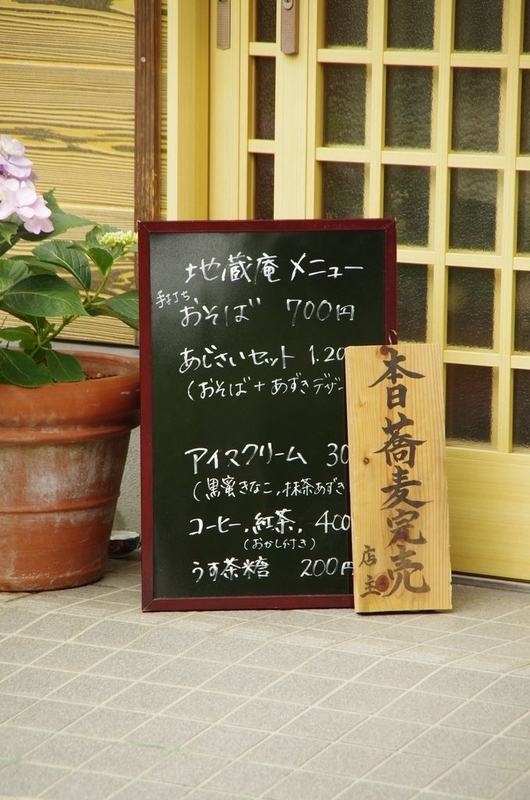 地蔵庵 メニュー
手打ち
おそば 700円
あじさいセット 1.20
(おそば + あずきデザー
アイスクリーム 30
(黒蜜きなこ,抹茶あずき
コーヒー,紅茶, 400
(おかし付き)
うす茶糖 200円
本日蕎麦完売
店主